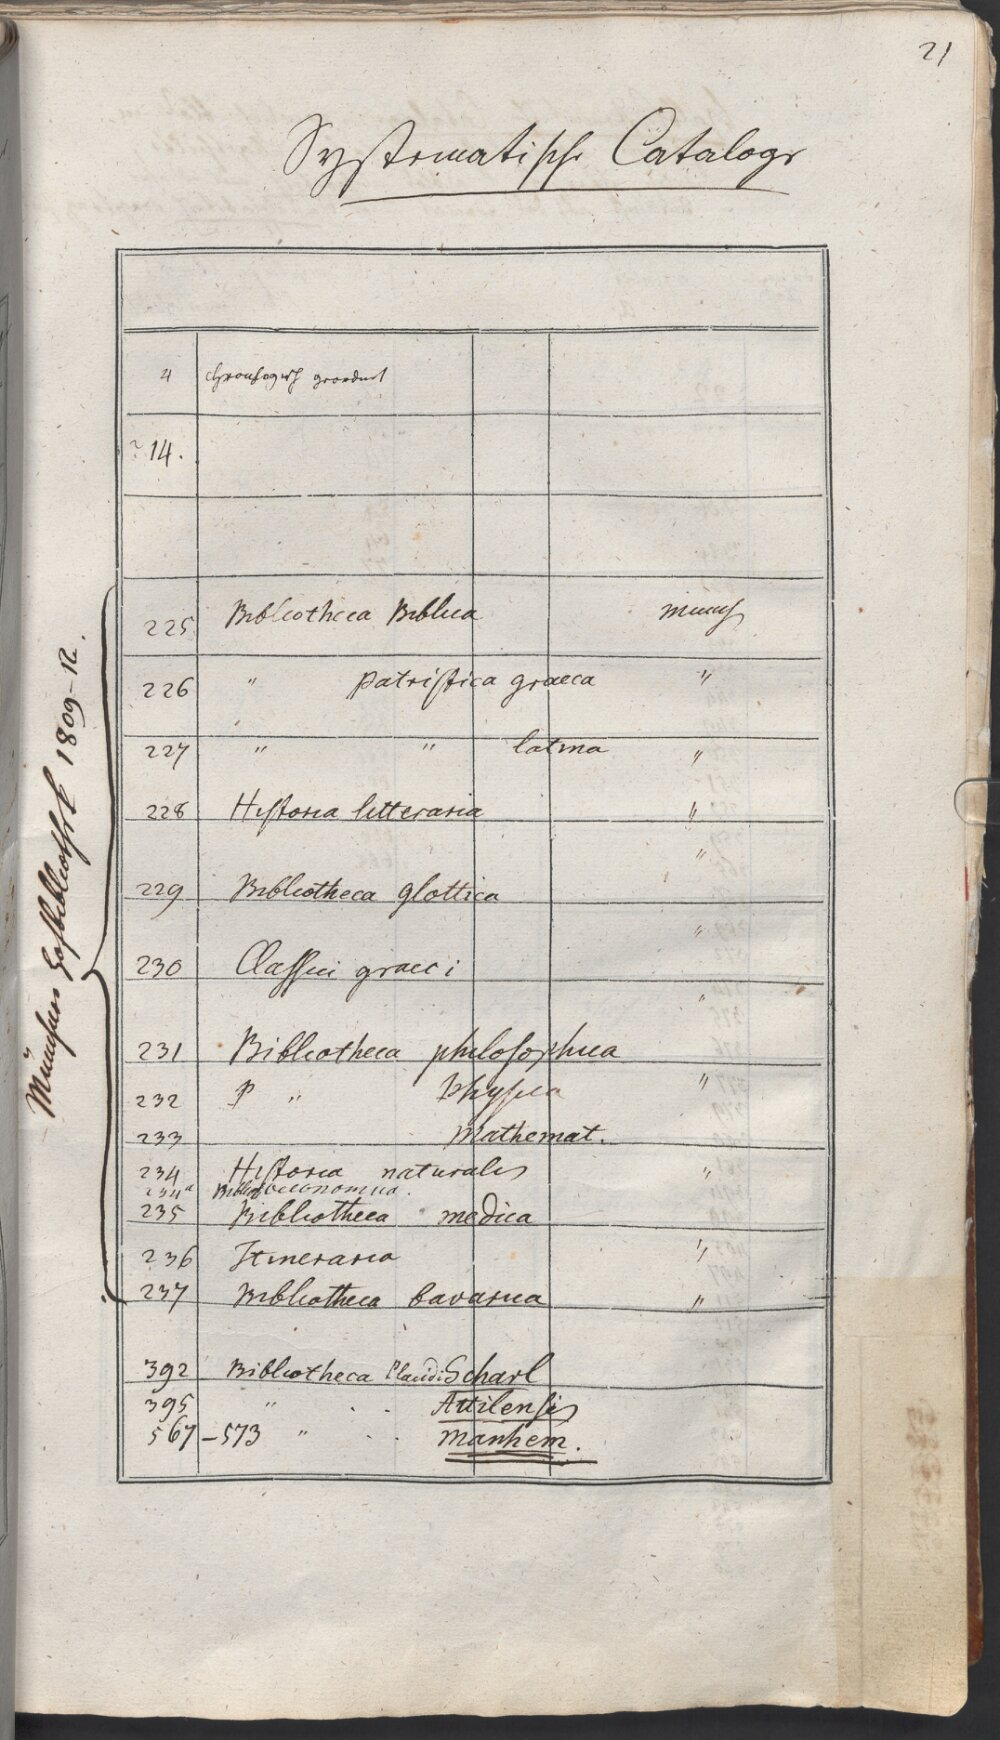 21
Systematische Cataloge
4 chronologisch geordnet
? 14.
Münchner Hofbibliothek 1809-12.
225 Bibliotheca Biblica
226 " patristica graeca "
227 " " latina "
228 Historia litteraria "
"
229 Bibliotheca glottica
"
230 Classici graeci
"
231 Bibliotheca philosophica
232 P " Physica "
233 Mathemat.
234 Historia naturalis "
234a Biblioth oeconomica.
235 Bibliotheca medica
236 Itineraria "
237 Bibliotheca bavarica "
392 Bibliotheca Claudi Scharl
395 " . . Attilensis
567-573 " . . Manhem.